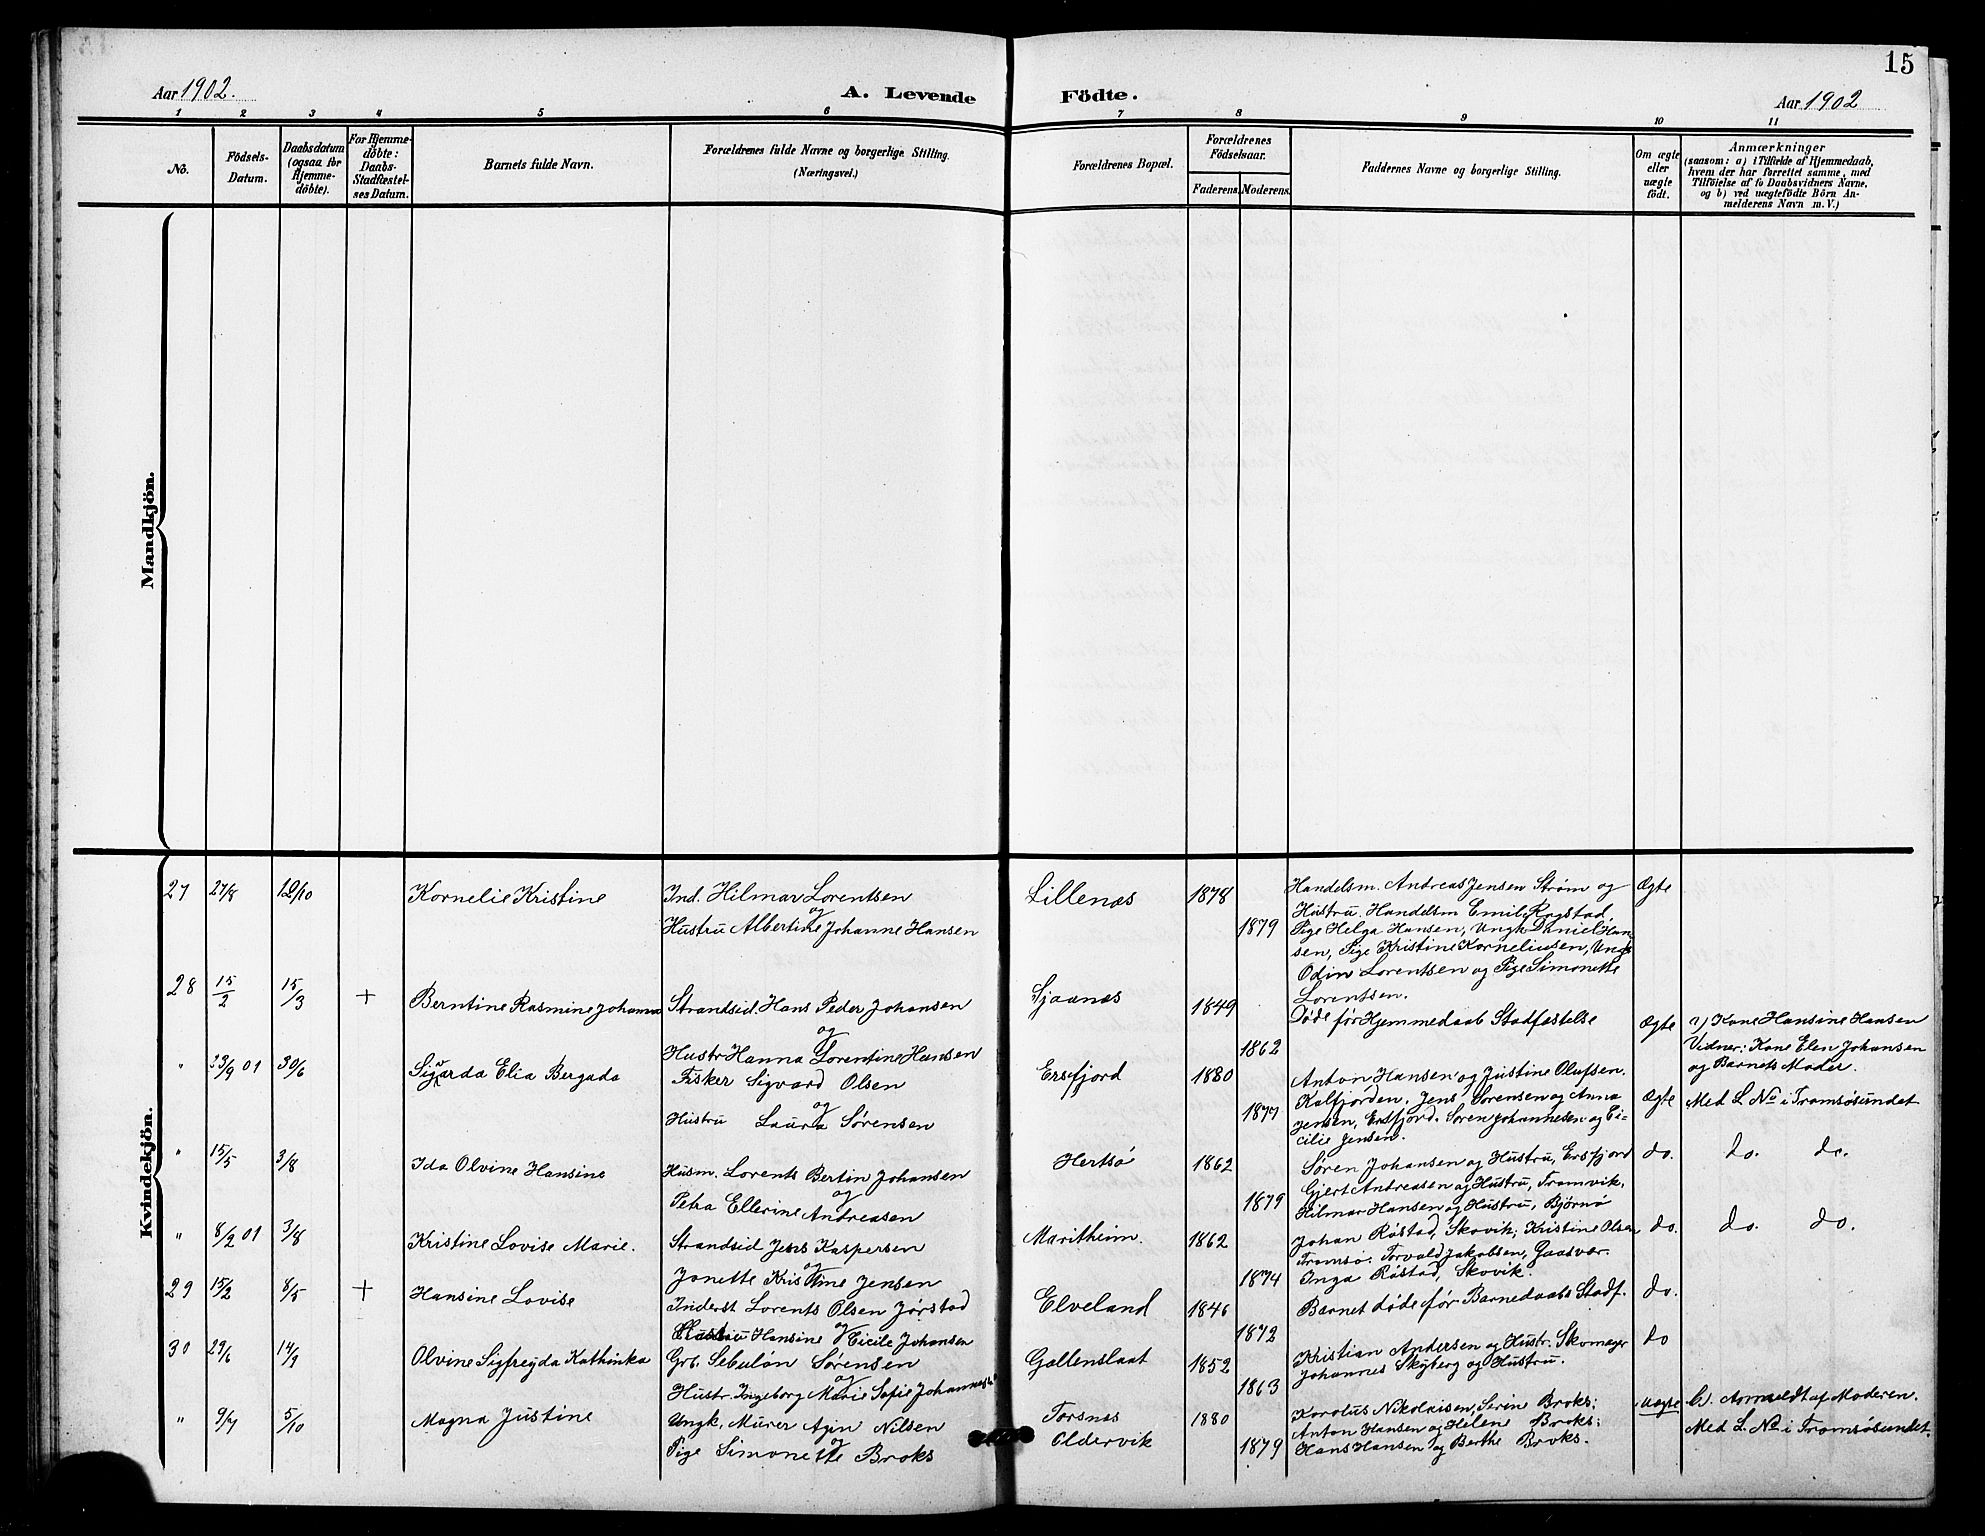 15
Aar 1902.
A. Levende Födte.
Aar 1902
1 2 3 4 5 6 7 8 9 10 11
No.
Födsels-Datum.
Daabsdatum (ogsaa for Hjemmedöbte).
For Hjemmedöbte: Daabs-Stadfæstelses Datum.
Barnets fulde Navn.
Forældrenes fulde Navne og borgerlige Stilling.
(Næringsvei.)
Forældrenes Bopæl.
Forældrenes Födselsaar.
Faderens. Moderens.
Faddernes Navne og borgerlige Stilling.
Om ægte eller uægte födt.
Anmærkninger
(saasom: a) i Tilfælde af Hjemmedaab,
hvem der har forrettet samme, med
Tilföielse af to Daabsvidners Navne,
og b) ved uægtefödte Börn An-
melderens Navn m. V.)
Mandkjön.
Kvindekjön.
27 27/8 12/10 Kornelie Kristine
Ind. Hilmar Lorentsen
og
Hustru Albertine Johanne Hansen
Lillenæs 1878 1879
Handelsm. Andreas Jensen Strøm og
Hustru. Handelsm Emil Rogstad,
Pige Helga Hansen, Ungk Daniel Han-
sen, Pige Kristine Korneliusen, Ungk
Odin Lorentsen og Pige Simonette
Lorentsen.
Ægte
28 15/2 15/3 + Berntine Rasmine Johanna
Strandsid. Hans Peder Johansen
og
Hustr Hanna Lorentine Hansen
Sjaanæs 1849 1862
Døde før Hjemmedaab Stadfæstelse
Ægte
a) Kone Hansine Hansen
Vidner: Kone Elen Johansen
og Barnets Moder.
" 23/9 01 30/6 Sigvarda Elia Bergada
Fisker Sigvard Olsen
og
Hustru Laura Sørensen
Ersfjord 1880 1877
Anton Hansen og Justine Olufsen.
Kalfjorden. Jens Sørensen og Anna
Jensen, Ersfjord. Søren Johannesen og Ci-
cilie Jensen.
Ægte
Med L No i Tromsøsundet
" 15/5 3/8 Ida Olvine Hansine
Husm. Lorents Bertin Johansen
og
Petra Ellerine Andreasen
Hertsø 1862 1879
Søren Johansen og Hustru, Ersfjord
Gjert Andreasen og Hustru, Tromvik.
Hilmar Hansen og Hustru, Bjørnø
do. do. do.
" 8/2 01 3/8 Kristine Lovise Marie.
Strandsid Jens Kaspersen
og
Jonette Kristine Jensen
Maritheim. 1862 1874
Johan Røstad, Skovik, Kristine Olsen
Tromsø. Torvald Jakobsen, Gaasvær.
Inga Røstad, Skovik.
do. do. do.
29 15/2 8/5 + Hansine Lovise
Inderst Lorents Olsen Jørstad
og
Hustru Hansine Cicile Johansen
Elveland 1846 1872
Barnet døde før Barnedaabs Stadf.
do.
30 29/6 14/9 Olvine Sigfreyda Kathinka
Grb. Sebulon Sørensen
og
Hustr. Ingeborg Marie Sofie Johannes
Gallenslaat 1852 1863
Kristian Andersen og Hustr. Skomager
Johannes Skyberg og Hustru.
do
" 9/7 5/10 Magna Justine
Ungk. Murer Agin Nilsen
og
Pige Simonette Broks
Torsnæs
Oldervik
1880 1879
Karolus Nikolaisen, Serin Broks;
Anton Hansen og Helene Broks;
Hans Hansen og Berthe Broks.
Uægte
b. Anmeldt af Moderen.
Med L. No i Tromsøsundet.